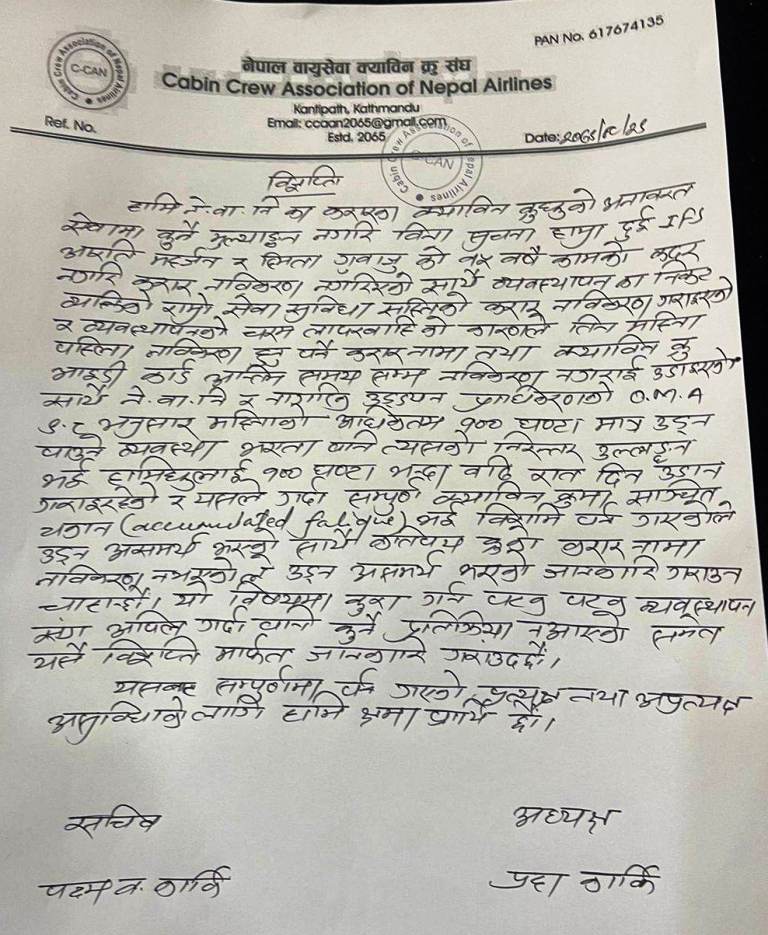 PAN No. 617674135
Cabin Crew Association of Nepal Airlines
C-CAN
नेपाल वायुसेवा क्याविन क्रु संघ
Cabin Crew Association of Nepal Airlines
Kantipath, Kathmandu
Email: ccaan2065@gmail.com
Estd. 2065
Ref. No.
Date:
Cabin Crew Association of Nepal Airlines
C-CAN
विज्ञप्ति
हामि ने. वा. नि का करारका क्याविन क्रुहरुको अनावरत
सेवामा कुनै मुल्याङ्कन नगरि विना सुचना हाम्रा दुई IFS
आरति महर्जन र स्मिता गुवाजु को वर्षौ कामको कदर
नगरि करार नविकरण नगरिएको साथै व्यवस्थापन का निकट
व्यक्तिको राम्रो सेवा सुविधा सहितको करार नविकरण गराइएको
र व्यवस्थापनको चरम लापरवाहि को कारणले तिन महिना
पहिला नविकरण हुनु पर्ने करारनामा तथा क्याविन क्रु
आइडी कार्ड अन्तिम समय सम्म नविकरण नगराई उडाइएको
साथै ने. वा. नि र नागरिक उड्डयन प्राधिकरणको O.M.A
अनुसार महिनाको अधिकतम १०० घण्टा मात्र उड्न
पाउने व्यवस्था भएता पनि त्यसको निरन्तर उल्लङ्घन
भई हामिहरुलाई १०० घण्टा भन्दा वढि रात दिन उडान
गराइरहेको र यसले गर्दा सम्पुर्ण क्याविन क्रुमा सञ्चित
थकान (accumulated fatigue) भई विरामि पर्न गएकोले
उड्न असमर्थ भएको साथै कतिपय क्रुको करार नामा
नविकरण नभएकोले उड्न असमर्थ भएको जानकारि गराउन
चाहान्छौ। यो विषयमा कुरा गर्न पटक पटक व्यवस्थापन
संग अपिल गर्दा पनि कुनै प्रतिक्रिया नआएको समेत
यसै विज्ञप्ति मार्फत जानकारि गराउदछौ।
यसबाट सम्पुर्णमा पर्न गएको प्रत्यक्ष तथा अप्रत्यक्ष
असुविधाको लागि हामि क्षमा प्रार्थि छौ।
सचिव
अध्यक्ष
पदम व. कार्कि
कार्कि